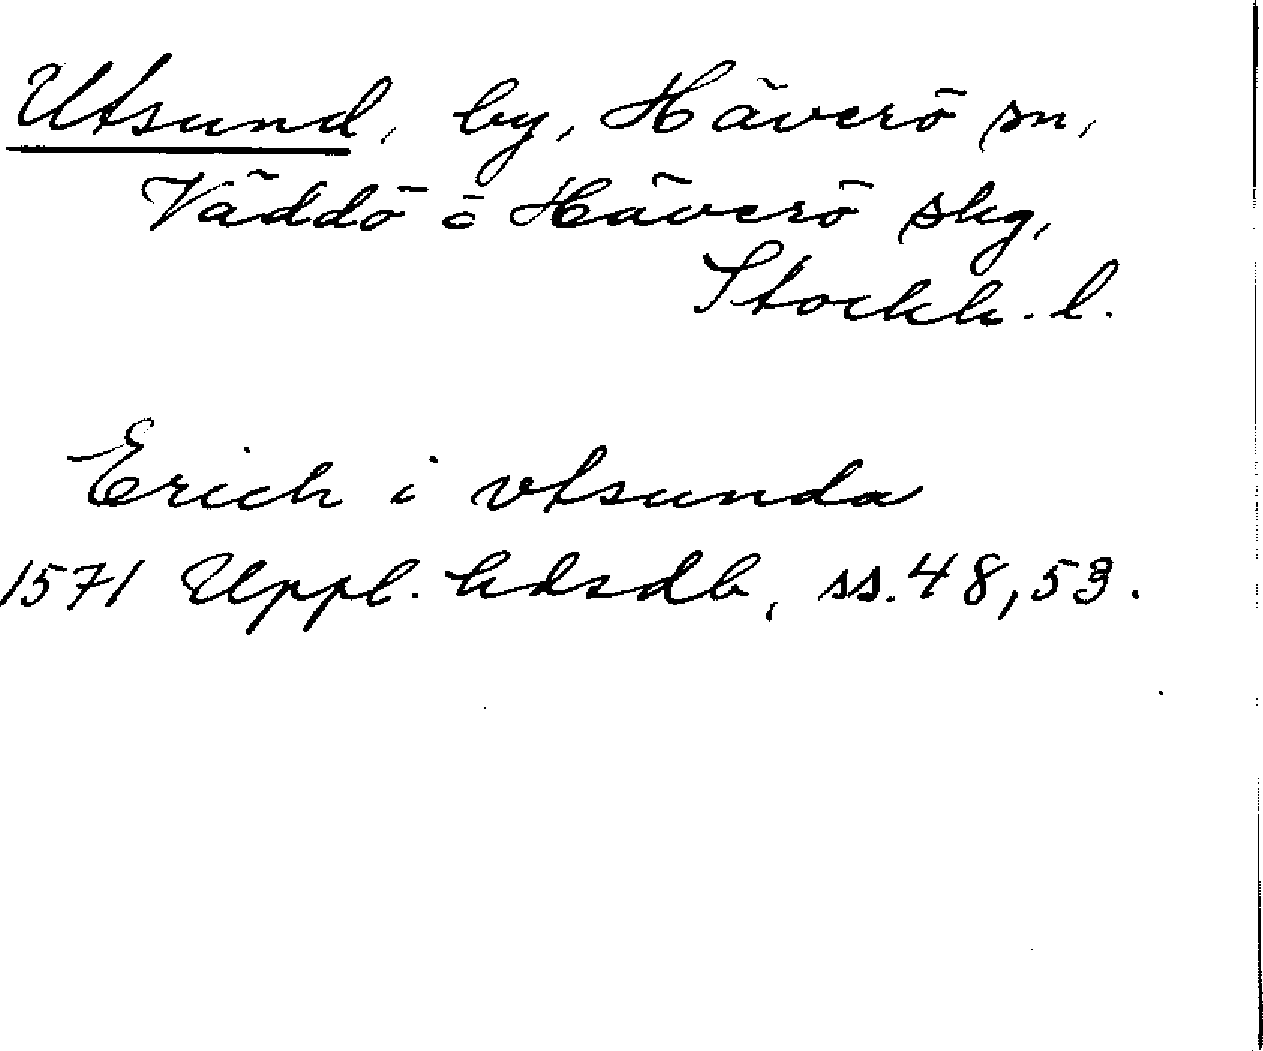 Utsund, by, Häverö sn,
Väddö o Häverö skg,
Stockh. l.
Erich i vtsunda
1571 Uppl. hdsdb, ss. 48, 53.